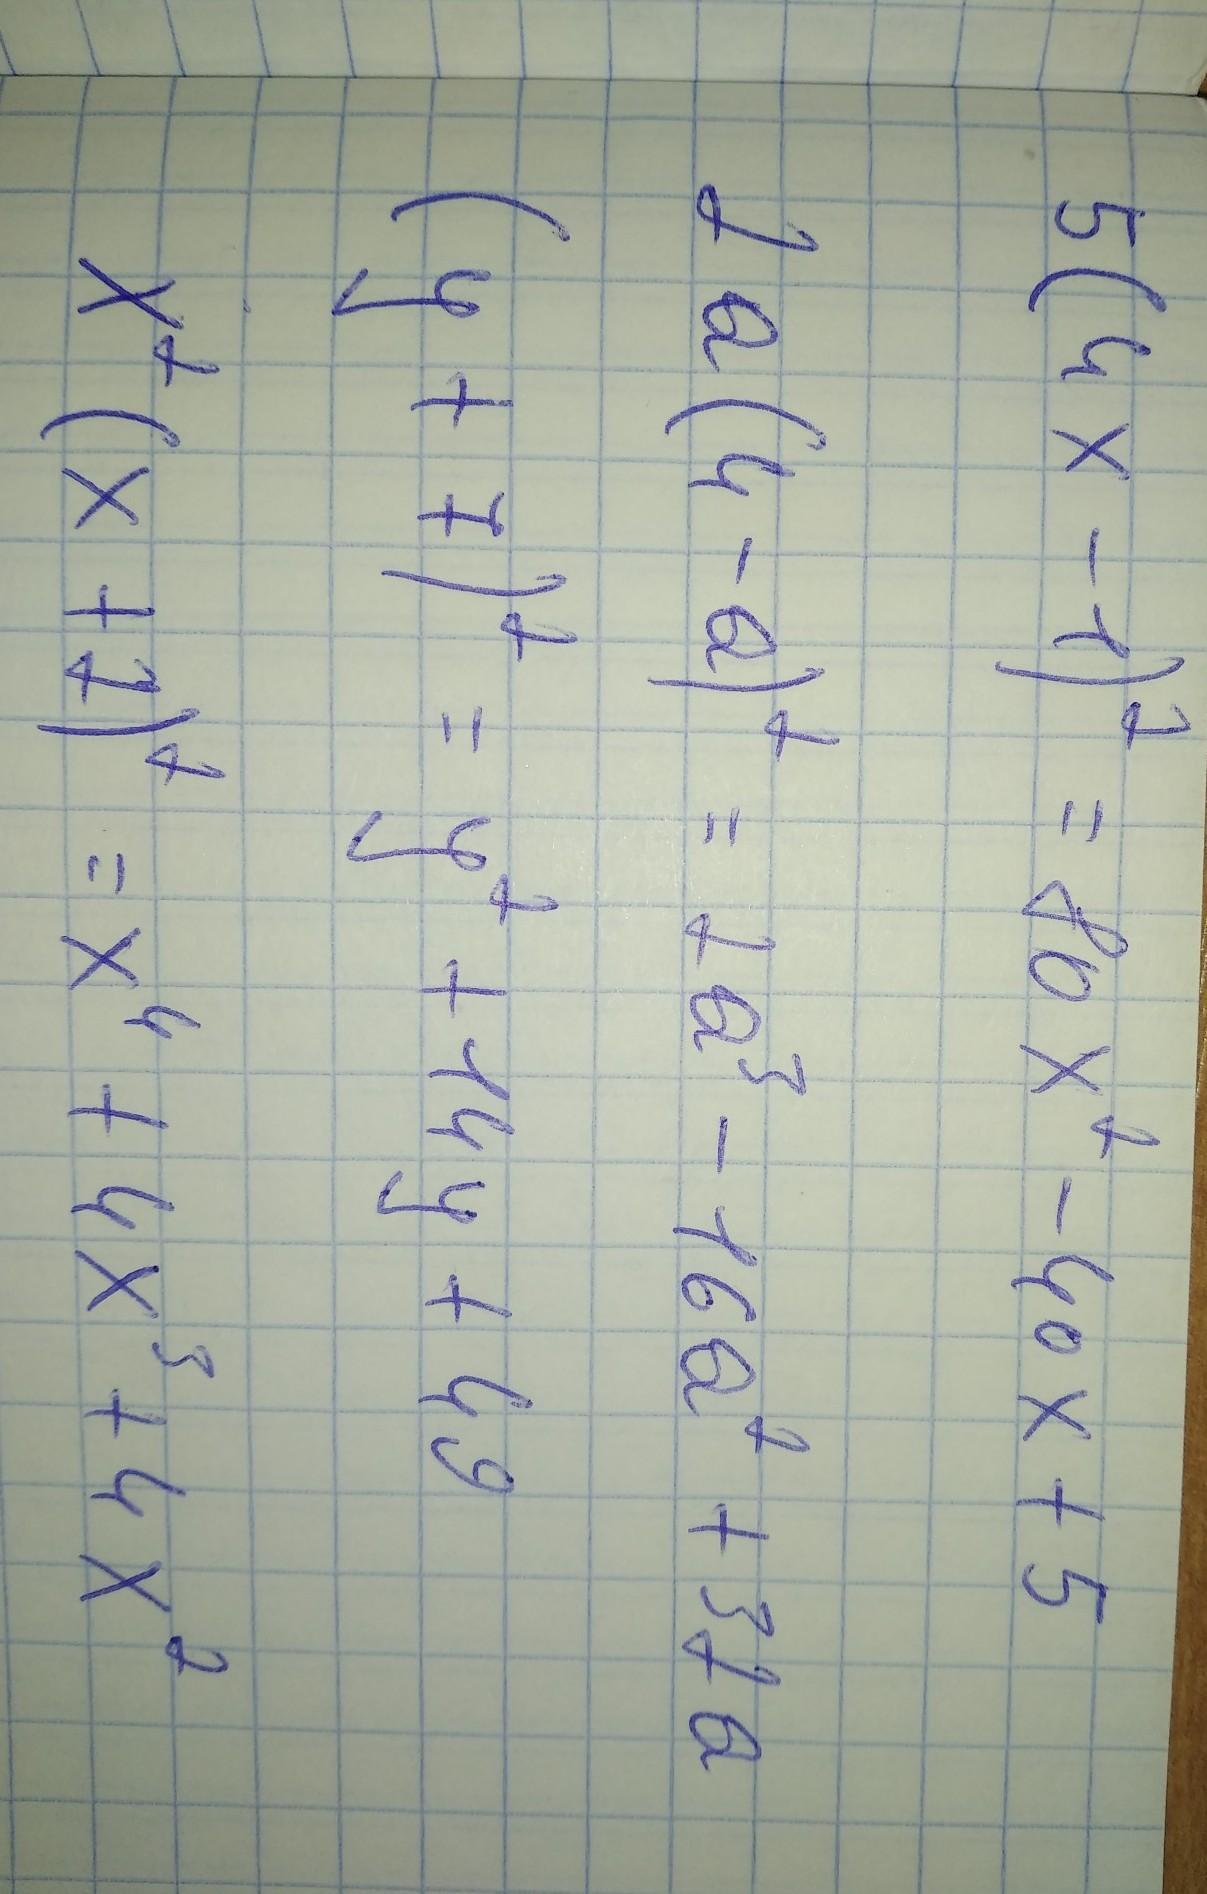 5(4x-1)² = 80x² - 40x + 5
2a(4-a)² = 2a³ - 16a² + 32a
(y+7)² = y² + 14y + 49
x²(x+2)² = x⁴ + 4x³ + 4x²